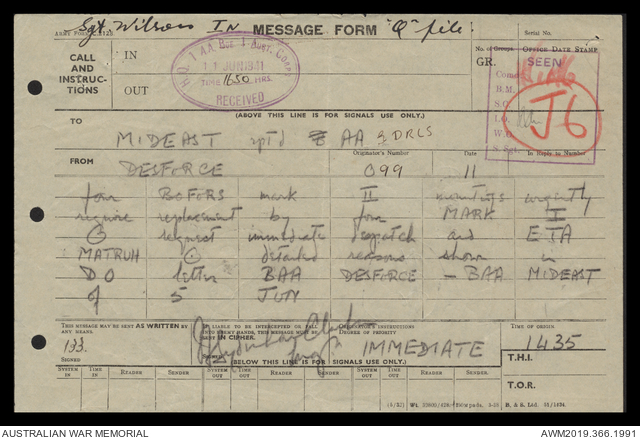 Sgt Wilson In MESSAGE FORM "Q" file.
ARMY FORM Serial No.
CALL AND INSTRUCTIONS
IN
OUT
H.Q. A.A. Bde 1 Aust. Corps
11 JUN 1941
TIME 1650 HRS.
RECEIVED
No. of Groups.
GR.
OFFICE DATE STAMP
SEEN
B.M.
S.C.
I.O.
S. Sgt.
J6
(ABOVE THIS LINE IS FOR SIGNALS USE ONLY.)
TO
MIDEAST rptd AA 3 DRLS
FROM Originator's Number Date In Reply to Number
DESFORCE 099 11
four BOFORS mark II mountings urgently
require replacement by four MARK I
request immediate despatch and ETA
MATRUH detailed reasons shown in
DO letter BAA DESFORCE – BAA MIDEAST
of 5 JUN
THIS MESSAGE MAY BE SENT AS WRITTEN BY ANY MEANS.
133.
SIGNED
IF LIABLE TO BE INTERCEPTED OR FALL INTO ENEMY HANDS, THIS MESSAGE MUST BE SENT IN CIPHER.
ORIGINATOR'S INSTRUCTIONS
DEGREE OF PRIORITY
IMMEDIATE
TIME OF ORIGIN
1435
(BELOW THIS LINE IS FOR SIGNALS USE ONLY.)
T.H.I.
T.O.R.
SYSTEM IN TIME IN READER SENDER SYSTEM OUT TIME OUT READER SENDER SYSTEM OUT TIME OUT READER SENDER
AUSTRALIAN WAR MEMORIAL AWM2019.366.1991